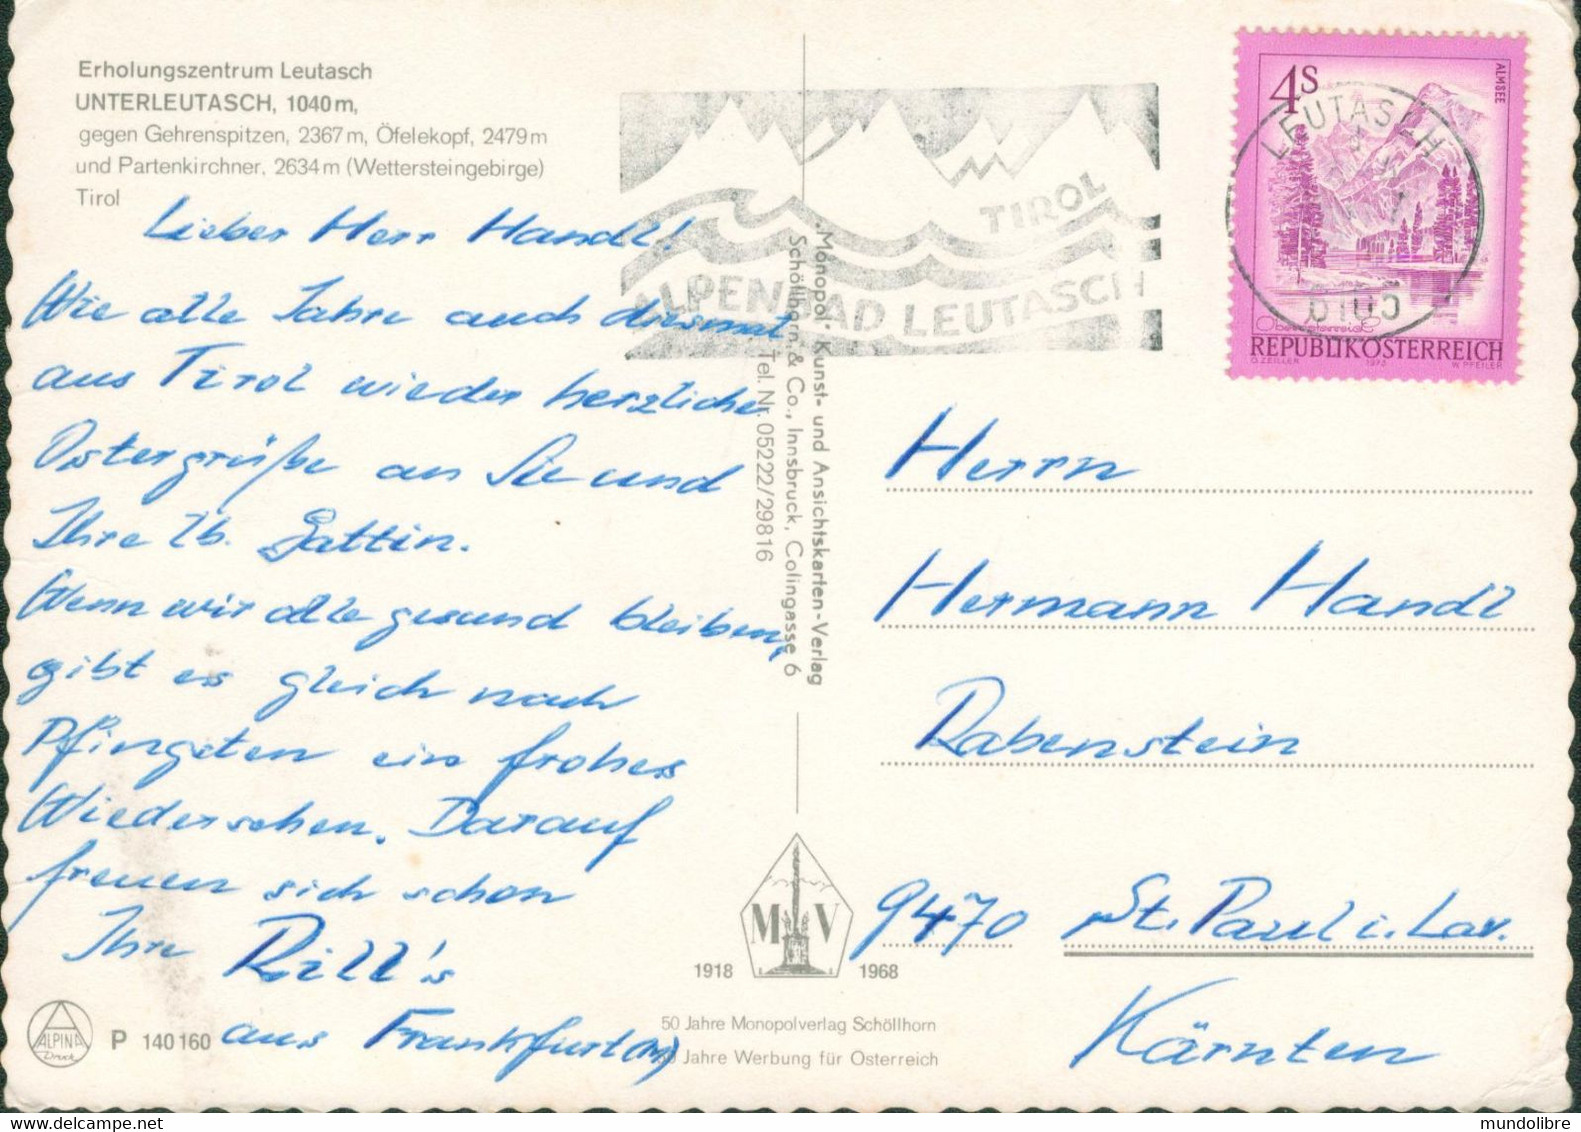 Erholungszentrum Leutasch
UNTERLEUTASCH, 1040 m,
gegen Gehrenspitzen, 2367 m, Öfelekopf, 2479 m
und Partenkirchner, 2634 m (Wettersteingebirge)
Tirol
Lieber Herr Handl!
Wie alle Jahre auch diesmal
aus Tirol wieder herzliche
Ostergrüße an Sie und
Ihre lb. Gattin.
Wenn wir alle gesund bleiben,
gibt es gleich nach
Pfingsten ein frohes
Wiedersehen. Darauf
freuen sich schon
Ihre Rill's
aus Frankfurt(M)
ALPINA
Druck
P 140 160
TIROL
ALPENBAD LEUTASCH
Monopol - Kunst- und Ansichtskarten-Verlag
Schöllhorn & Co., Innsbruck, Colingasse 6
Tel. Nr. 05222/29816
M V
1918 1968
50 Jahre Monopolverlag Schöllhorn
50 Jahre Werbung für Österreich
4S
ALMSEE
LEUTASCH
6105
Oberösterreich
REPUBLIK ÖSTERREICH
O. ZEILLER 1973 W. PFEILER
Herrn
Hermann Handl
Rabenstein
9470 St. Paul i. Lav.
Kärnten
mundolibre